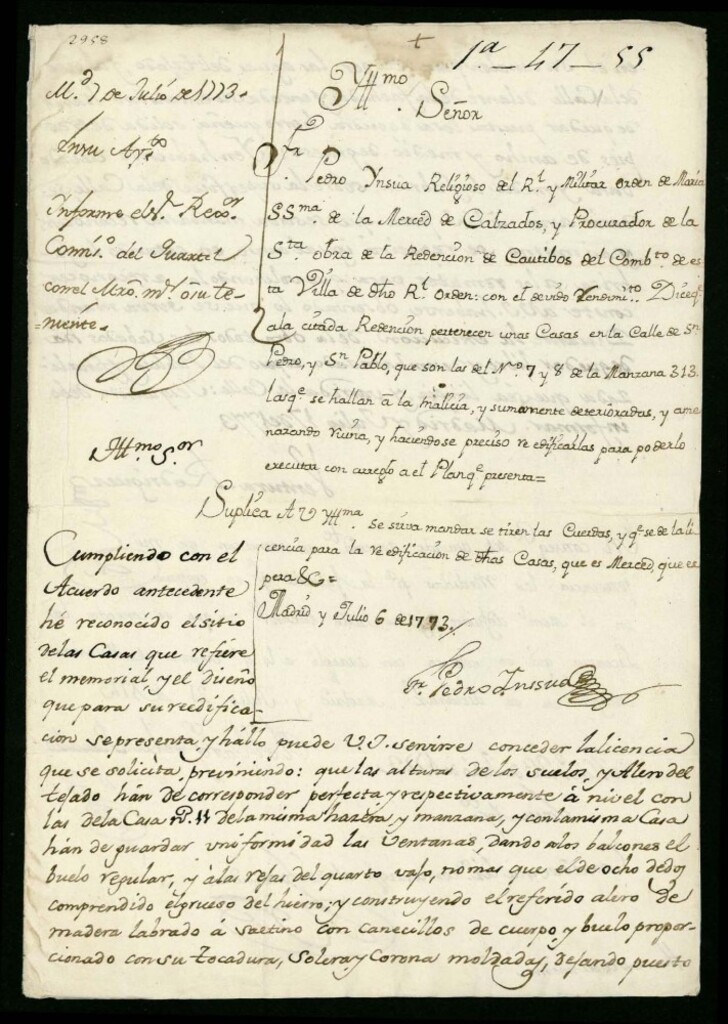 2958
+
1ª - 47 - 55
M.d 7 de Julio de 1773.
En su Ay.to
Informe el S.r Rexor
Comis.o del Quartel
con el Mro. m.r ó su te-
=niente.
Yllmo
Señor
Fr. Pedro Ynsua Religioso del R.l y Militar orden de Maria
SSma. de la Merced de Calzados, y Procurador de la
Sta. obra de la Redencion de Cautibos del Combto. de es
ta Villa de dho Rl. Orden: con el devido Rendimito. Dice qe.
a la citada Redencion pertenecen unas Casas en la Calle de Sn.
Pedro, y Sn. Pablo, que son las del No. 7 y 8 de la Manzana 313
las qe. se hallan â la malicia, y sumamente deterioradas, y ame
nazando ruina, y haciendose preciso re edificarlas para poderlo
executar con arreglo a el Plan qe. presenta=
Suplica A V Yllma. Se sirva mandar se tiren las Cuerdas, y qe. se de la li
cencia para la re edificacion de dhas Casas, que es Merced, que es
pera &c=
Madrid y Julio 6 de 1773.
Fr. Pedro Ynssua
Yllmo Sor
Cumpliendo con el
Acuerdo antecedente
hé reconocido el sitio
de las Casas que refiere
el memorial, y el diseño
que para su reedifica-
cion se presenta, y hállo puede V.I. servirse conceder la licencia
que se solicita, previniendo: que las alturas de los suelos, y Alero del
tejado hán de corresponder perfecta y respectivamente á nivel con
las de la Casa N. 11 de la misma hazera, y manzana, y con la misma Casa
hán de guardar uniformidad las ventanas, dando a los balcones el
buelo regular, y á las rejas del quarto vajo, no mas que el de ocho dedos
comprendido el grueso del hierro; y construyendo el referido alero de
madera labrado á saetino con canecillos de cuerpo y buelo propor-
cionado con su tocadura, solera, y Corona moldadas, dejando puesto